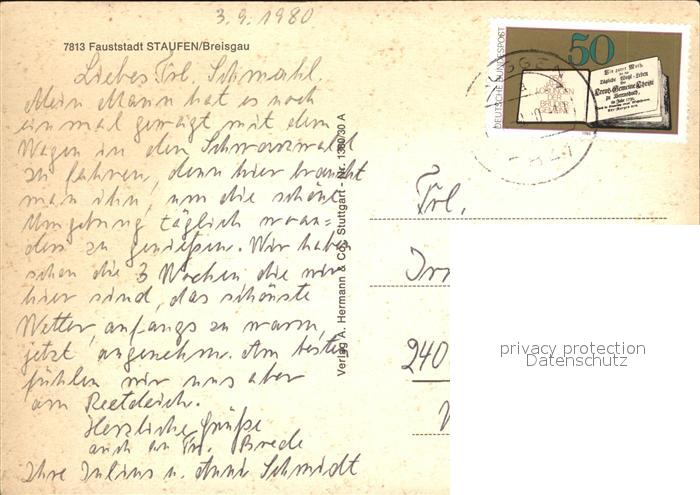 3.9.1980
7813 Fauststadt STAUFEN/Breisgau
Liebes Frl. Schmahl.
Mein Mann hat es noch
einmal gewagt mit dem
Wagen in den Schwarzwald
zu fahren, denn hier braucht
man ihn, um die schöne
Umgebung täglich woan=
ders zu genießen. Wir haben
schon die 3 Wochen die wir
hier sind, das schönste
Wetter, anfangs zu warm,
jetzt angenehm. Am besten
fühlen wir uns aber
am Reetdeich.
Herzliche Grüße
auch an Frl. Brede
Ihre Julius u. Anni Schmidt
Verlag A. Hermann & Co., Stuttgart - Nr. 1380/30 A
DEUTSCHE BUNDESPOST
50
Frl.
240
privacy protection
Datenschutz